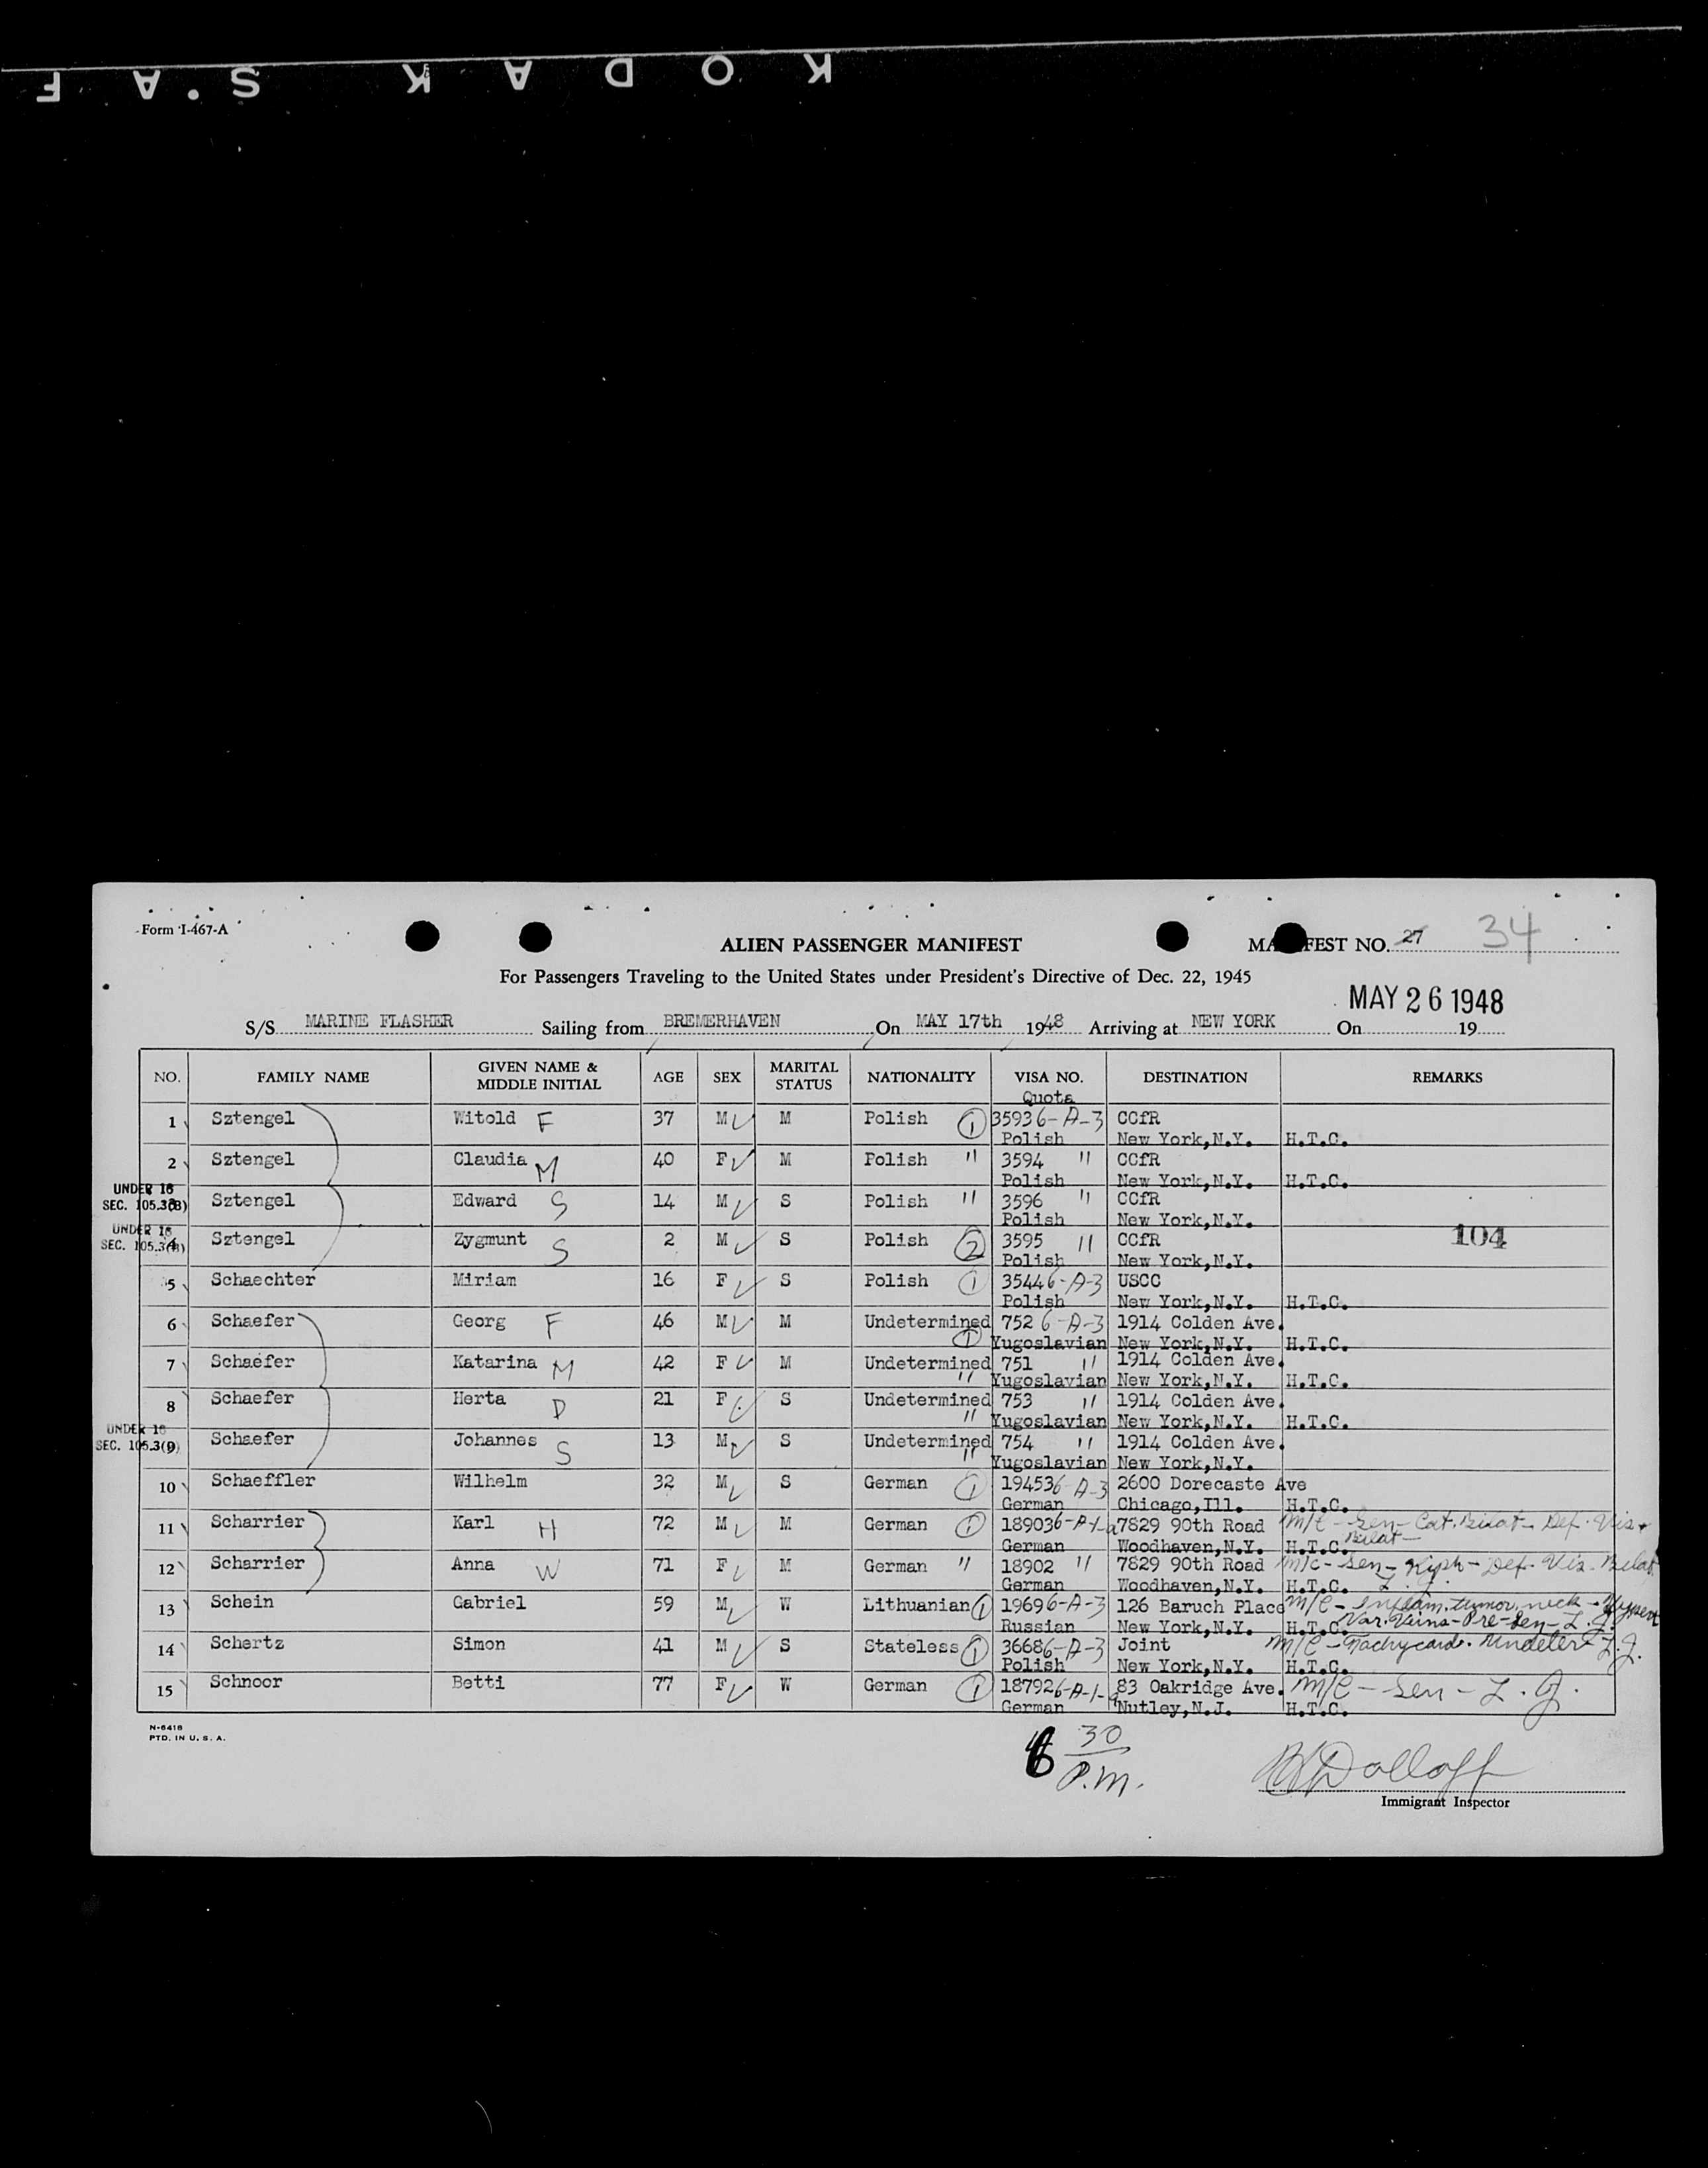 KODAK S.A F
Form I-467-A
ALIEN PASSENGER MANIFEST
MANIFEST NO. 27 34
For Passengers Traveling to the United States under President's Directive of Dec. 22, 1945
MAY 26 1948
S/S MARINE FLASHER Sailing from BREMERHAVEN On MAY 17th 1948 Arriving at NEW YORK On 19
NO. FAMILY NAME GIVEN NAME & MIDDLE INITIAL AGE SEX MARITAL STATUS NATIONALITY VISA NO. Quota DESTINATION REMARKS
1 Sztengel Witold F 37 M M Polish 1 3593 6-A-3 CCfR
Polish New York,N.Y. H.T.C.
2 Sztengel Claudia M 40 F M Polish " 3594 " CCfR
Polish New York,N.Y. H.T.C.
UNDER 16
SEC. 105.3(B) 3 Sztengel Edward S 14 M S Polish " 3596 " CCfR
Polish New York,N.Y.
UNDER 16
SEC. 105.3(B) 4 Sztengel Zygmunt S 2 M S Polish 2 3595 " CCfR 104
Polish New York,N.Y.
5 Schaechter Miriam 16 F S Polish 1 3544 6-A-3 USCC
Polish New York,N.Y. H.T.C.
6 Schaefer Georg F 46 M M Undetermined 752 6-A-3 1914 Colden Ave.
1 Yugoslavian New York,N.Y. H.T.C.
7 Schaefer Katarina M 42 F M Undetermined 751 " 1914 Colden Ave.
" Yugoslavian New York,N.Y. H.T.C.
8 Schaefer Herta D 21 F S Undetermined 753 " 1914 Colden Ave.
" Yugoslavian New York,N.Y. H.T.C.
UNDER 16
SEC. 105.3(B) 9 Schaefer Johannes S 13 M S Undetermined 754 " 1914 Colden Ave.
" Yugoslavian New York,N.Y.
10 Schaeffler Wilhelm 32 M S German 1 19453 6-A-3 2600 Dorecaste Ave
German Chicago,Ill. H.T.C.
11 Scharrier Karl H 72 M M German 1 18903 6-A-1-a 7829 90th Road M/C - Sen - Cat. Bilat - Def. Vis.
German Woodhaven,N.Y. H.T.C. Bilat -
12 Scharrier Anna W 71 F M German " 18902 " 7829 90th Road M/C - Sen - Kyph - Def. Vis. Bilat
German Woodhaven,N.Y. H.T.C. L.J.
13 Schein Gabriel 59 M W Lithuanian 1 1969 6-A-3 126 Baruch Place M/C - Inflam. tumor, neck - Hypert
Russian New York,N.Y. H.T.C. Var. Veins - Pre-Sen - L.J.
14 Schertz Simon 41 M S Stateless 1 3668 6-A-3 Joint M/C - Tachycard. Undeter - L.J.
Polish New York,N.Y. H.T.C.
15 Schnoor Betti 77 F W German 1 18792 6-A-1-a 83 Oakridge Ave. M/C - Sen - L.J.
German Nutley,N.J. H.T.C.
N-6418
PTD. IN U. S. A.
6 30
P.M.
Dolloff
Immigrant Inspector